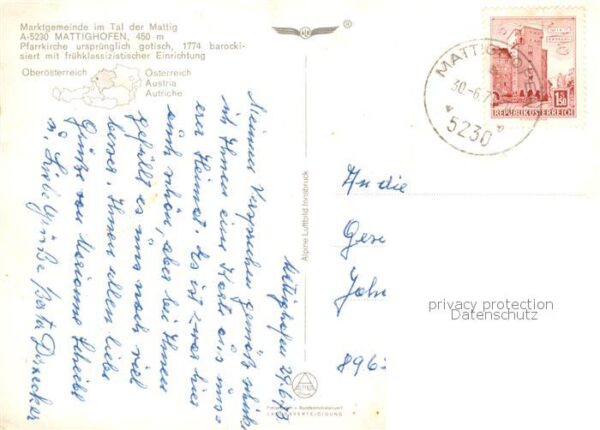 Marktgemeinde im Tal der Mattig
A-5230 MATTIGHOFEN, 450 m
Pfarrkirche ursprünglich gotisch, 1774 barocki-
siert mit frühklassizistischer Einrichtung
Oberösterreich
Österreich
Austria
Autriche
Mattighofen 29.6.73
Meinem Versprechen gemäß schicke
ich Ihnen eine Karte aus uns-
erer Heimat. Es ist zwar hier
auch schön, aber bei Ihnen
gefällt es uns noch viel
besser. Ihnen allen liebe
Grüße von Marianne
u. Liebe Grüße Berta
Alpine Luftbild Innsbruck
MATTIGHOFEN
30.-6.7
5230
1.50
REPUBLIK ÖSTERREICH
An die
Gesc
Joha
8963
privacy protection
Datenschutz